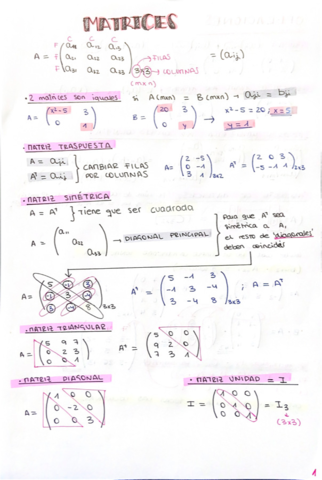 MATRICES
F C C C
A = F ( a11 a12 a13
F a21 a22 a23
F a31 a32 a33 ) 3x3 → FILAS → COLUMNAS (mxn) = (aij)
· 2 matrices son iguales si A(mxn) = B(mxn) → aij = bij
A = ( x²-5 3
0 1 ) B = ( 20 3
0 y ) → x²-5 = 20; x=5
y = 1
· MATRIZ TRASPUESTA
A = aji
Aᵗ = aij } CAMBIAR FILAS POR COLUMNAS
A = ( 2 -5
0 -1
3 1 ) 3x2 Aᵗ = ( 2 0 3
-5 -1 1 ) 2x3
· MATRIZ SIMÉTRICA
A = Aᵗ } Tiene que ser cuadrada
A = ( a11
a22
a33 ) → DIAGONAL PRINCIPAL
Para que Aᵗ sea
simétrica a A,
el resto de "diagonales"
deben coincidir
A = ( 5 -1 3
-1 3 -4
3 -4 8 ) 3x3 Aᵗ = ( 5 -1 3
-1 3 -4
3 -4 8 ) 3x3 ; A = Aᵗ
· MATRIZ TRIANGULAR
A = ( 5 9 7
0 2 3
0 0 1 ) Aᵗ = ( 5 0 0
9 2 0
7 3 1 )
· MATRIZ DIAGONAL
A = ( 1 0 0
0 -2 0
0 0 3 )
· MATRIZ UNIDAD = I
I = ( 1 0 0
0 1 0
0 0 1 ) = I3
(3x3)
1